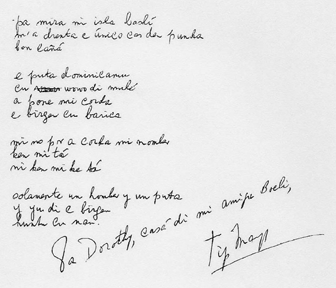 pa mira mi isla bashí
m'a drenta e único cas den punda
ben cañá

e puta dominicanu
cu wowo di mulá
a pone mi corda
e birgen cu barica

mi no por a corda mi nomber
ken mi tá
ni ken mi ke tá

solamente un homber y un puta
y yu di e birgen
hunto cu nan.

Pa Dorothy, casá di mi amigo Boeli,